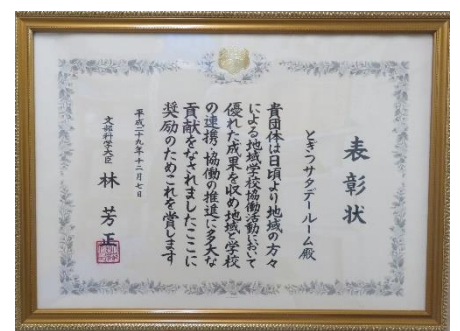 表彰状
ときつサタデールーム殿
貴団体は日頃より地域の方々
による地域学校協働活動において
優れた成果を収め地域と学校
の連携・協働の推進に多大な
貢献をなされましたここに
奨励のためこれを賞します
平成二十九年十二月七日
文部科学大臣
林芳正